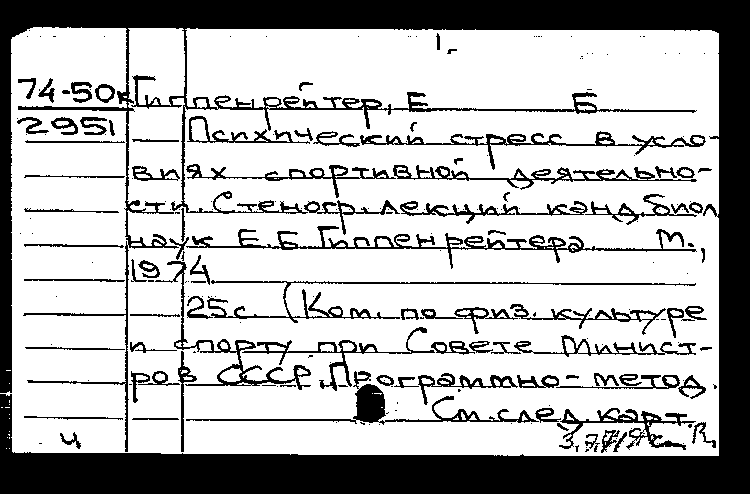 1.
74-50к Гиппенрейтер, Е Б
2951 Психический стресс в усло-
виях спортивной деятельно-
сти. Стеногр. лекций канд. биол
наук Е.Б. Гиппенрейтера. М.,
1974.
25 с. (Ком. по физ. культуре
и спорту при Совете Минист-
ров СССР. Программно-метод.
См. след. карт.
ч